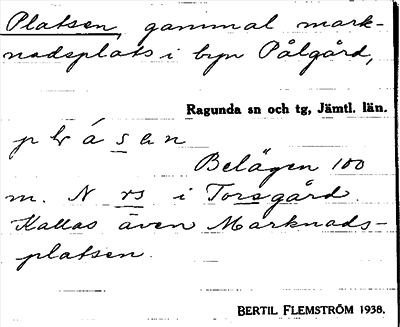 Platsen, gammal mark-
nadsplats i byn Pålgård,
Ragunda sn och tg, Jämtl. län.
Belägen 100
m. N rs i Torsgård.
Kallas även Marknads-
platsen.
BERTIL FLEMSTRÖM 1938.